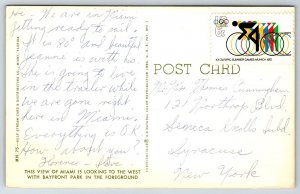 He - We are in Miami
getting ready to sail.
It is 90° and beautiful
Jeanne is with us
She is going to live
in the trailer while
we are gone right
here in Miami.
Everything is O.K.
How about you?
Florence -
POST CARD
XX OLYMPIC SUMMER GAMES MUNICH 1972
Thomas Cunningham
121 Northrup Blvd.
Seneca Knolls
Syracuse
New York
THIS VIEW OF MIAMI IS LOOKING TO THE WEST
WITH BAYFRONT PARK IN THE FOREGROUND